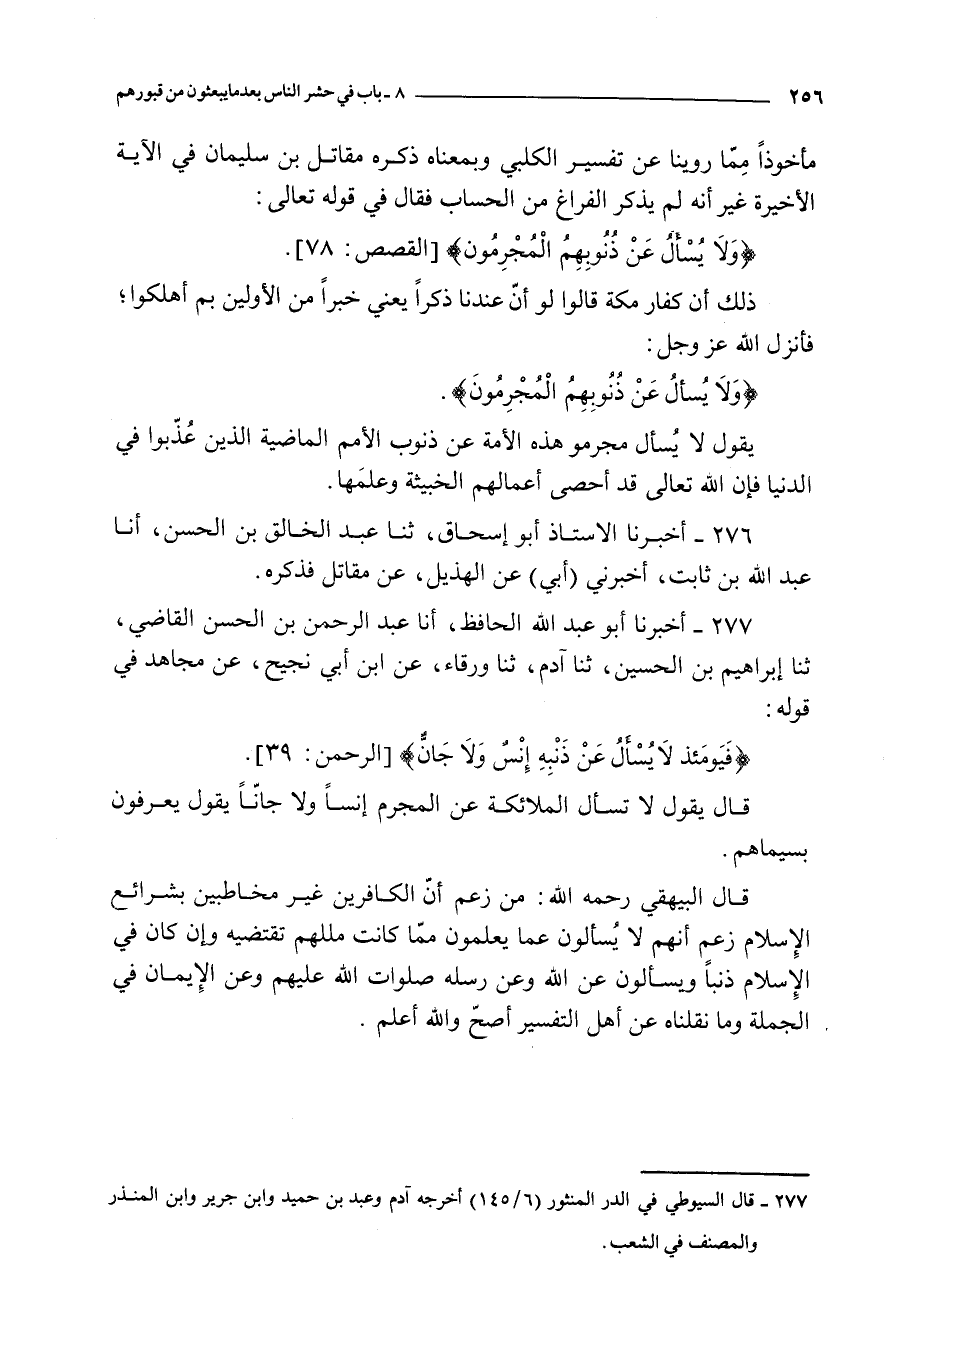 ٢٥٦ ٨ - باب في حشر الناس بعدما يبعثون من قبورهم
مأخوذاً مِمّا روينا عن تفسير الكلبي وبمعناه ذكره مقاتل بن سليمان في الآية
الأخيرة غير أنه لم يذكر الفراغ من الحساب فقال في قوله تعالى:
﴿وَلَا يُسْأَلُ عَنْ ذُنُوبِهِمُ الْمُجْرِمُون﴾ [القصص: ٧٨].
ذلك أن كفار مكة قالوا لو أنّ عندنا ذكراً يعني خبراً من الأولين بم أهلكوا؛
فأنزل الله عز وجل:
﴿وَلَا يُسألُ عَنْ ذُنُوبِهِمُ الْمُجْرِمُونَ﴾.
يقول لا يُسأل مجرمو هذه الأمة عن ذنوب الأمم الماضية الذين عُذّبوا في
الدنيا فإن الله تعالى قد أحصى أعمالهم الخبيثة وعلمَها.
٢٧٦ - أخبرنا الاستاذ أبو إسحاق، ثنا عبد الخالق بن الحسن، أنا
عبد الله بن ثابت، أخبرني (أبي) عن الهذيل، عن مقاتل فذكره.
٢٧٧ - أخبرنا أبو عبد الله الحافظ، أنا عبد الرحمن بن الحسن القاضي،
ثنا إبراهيم بن الحسين، ثنا آدم، ثنا ورقاء، عن ابن أبي نجيح، عن مجاهد في
قوله:
﴿فَيَومَئذ لَا يُسْأَلُ عَنْ ذَنْبِهِ إِنْسٌ وَلَا جَانٌّ﴾ [الرحمن: ٣٩].
قال يقول لا تسأل الملائكة عن المجرم إنساً ولا جانّاً يقول يعرفون
بسيماهم.
قال البيهقي رحمه الله: من زعم أنّ الكافرين غير مخاطبين بشرائع
الإسلام زعم أنهم لا يُسألون عما يعلمون ممّا كانت مللهم تقتضيه وإن كان في
الإسلام ذنباً ويسألون عن الله وعن رسله صلوات الله عليهم وعن الإيمان في
الجملة وما نقلناه عن أهل التفسير أصحّ والله أعلم.
٢٧٧ - قال السيوطي في الدر المنثور (١٤٥/٦) أخرجه آدم وعبد بن حميد وابن جرير وابن المنذر
والمصنف في الشعب.